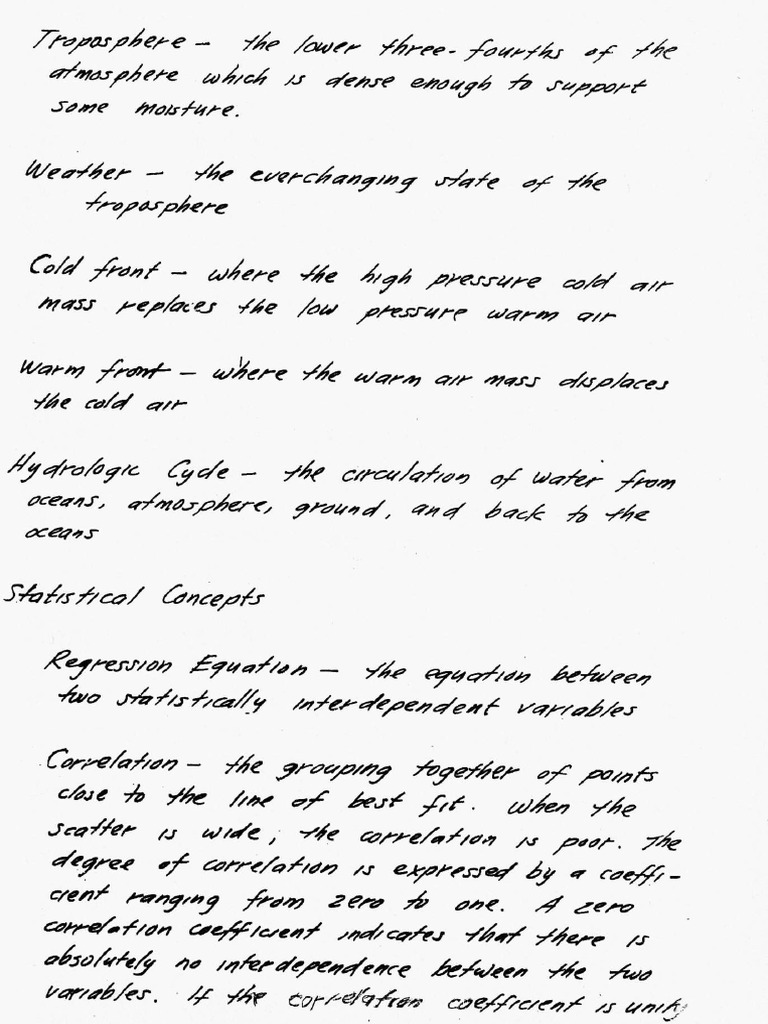 Troposphere — the lower three-fourths of the
atmosphere which is dense enough to support
some moisture.
Weather — the everchanging state of the
troposphere
Cold front — where the high pressure cold air
mass replaces the low pressure warm air
Warm front — where the warm air mass displaces
the cold air
Hydrologic Cycle — the circulation of water from
oceans, atmosphere, ground, and back to the
oceans
Statistical Concepts
Regression Equation — the equation between
two statistically interdependent variables
Correlation — the grouping together of points
close to the line of best fit. When the
scatter is wide, the correlation is poor. The
degree of correlation is expressed by a coeffi-
cient ranging from zero to one. A zero
correlation coefficient indicates that there is
absolutely no interdependence between the two
variables. If the correlation coefficient is unity